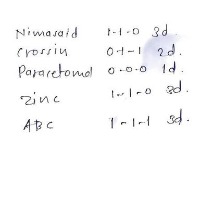 Nimasaid 1-1-0 3d.
Crossin 0-1-1 2d.
Paracetomol 0-0-0 1d.
Zinc 1-1-0 3d.
ABC 1-1-1 3d.